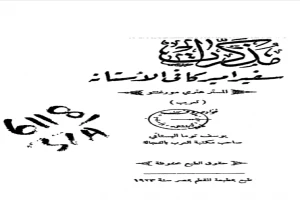 مذكرات
سفير اميركا في الاستانة
المستر هنري مورغنثو
(تعريب)
يوسف توما البستاني
صاحب مكتبة العرب بالفجالة
حقوق الطبع محفوظة
طبع بمطبعة المقطم بمصر سنة ١٩٢٣